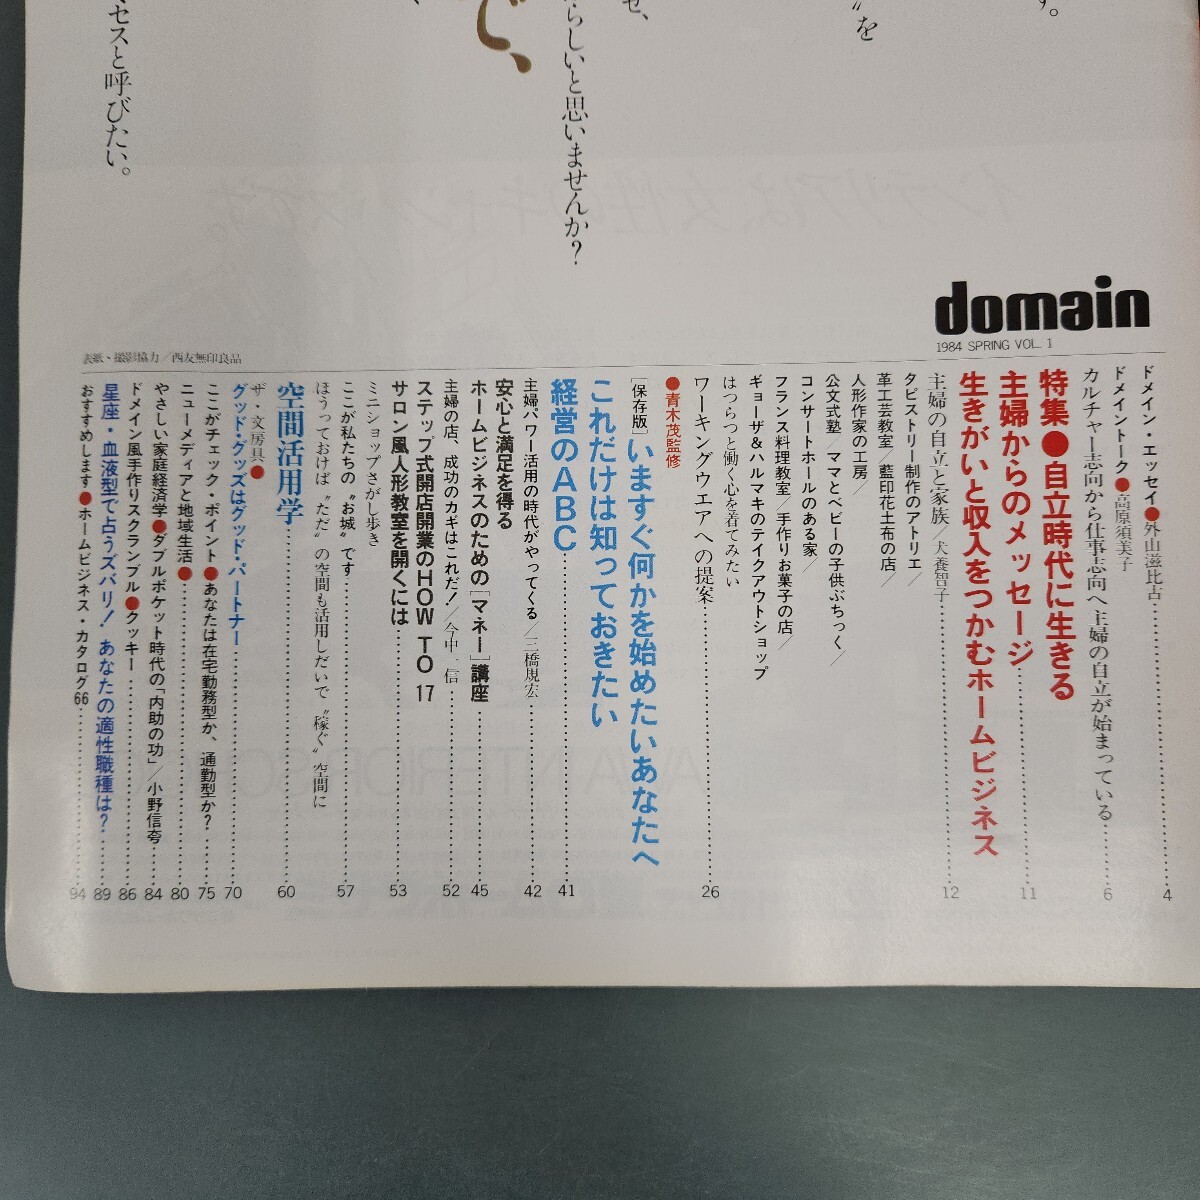 す。
〝を
せ、
らしいと思いませんか?
で、
、
セスと呼びたい。
domain
1984 SPRING VOL. 1
表紙、撮影協力/西友無印良品
ドメイン・エッセイ●外山滋比古……4
ドメイントーク●高原須美子
カルチャー志向から仕事志向へ主婦の自立が始まっている……6
特集●自立時代に生きる
主婦からのメッセージ……11
生きがいと収入をつかむホームビジネス
主婦の自立と家族/犬養智子……12
タピストリー制作のアトリエ/
革工芸教室/藍印花土布の店/
人形作家の工房/
公文式塾/ママとベビーの子供ぶちっく/
コンサートホールのある家/
フランス料理教室/手作りお菓子の店/
ギョーザ&ハルマキのテイクアウトショップ
はつらつと働く心を着てみたい
ワーキングウエアへの提案……26
●青木茂監修
[保存版]いますぐ何かを始めたいあなたへ
これだけは知っておきたい
経営のABC……41
主婦パワー活用の時代がやってくる/三橋規宏……42
安心と満足を得る
ホームビジネスのための[マネー]講座……45
主婦の店、成功のカギはこれだ!/今中一信……52
ステップ式開店開業のHOW TO 17
サロン風人形教室を開くには……53
ミニショップさがし歩き
ここが私たちの〝お城〟です……57
ほうっておけば〝ただ〟の空間も活用しだいで〝稼ぐ〟空間に
空間活用学……60
ザ・文房具●
グッド・グッズはグッド・パートナー……70
ここがチェック・ポイント●あなたは在宅勤務型か、通勤型か?……75
ニューメディアと地域生活●……80
やさしい家庭経済学●ダブルポケット時代の「内助の功」/小野信夸……84
ドメイン風手作りスクランブル●クッキー……86
星座・血液型で占うズバリ!あなたの適性職種は?……89
おすすめします●ホームビジネス・カタログ66……94